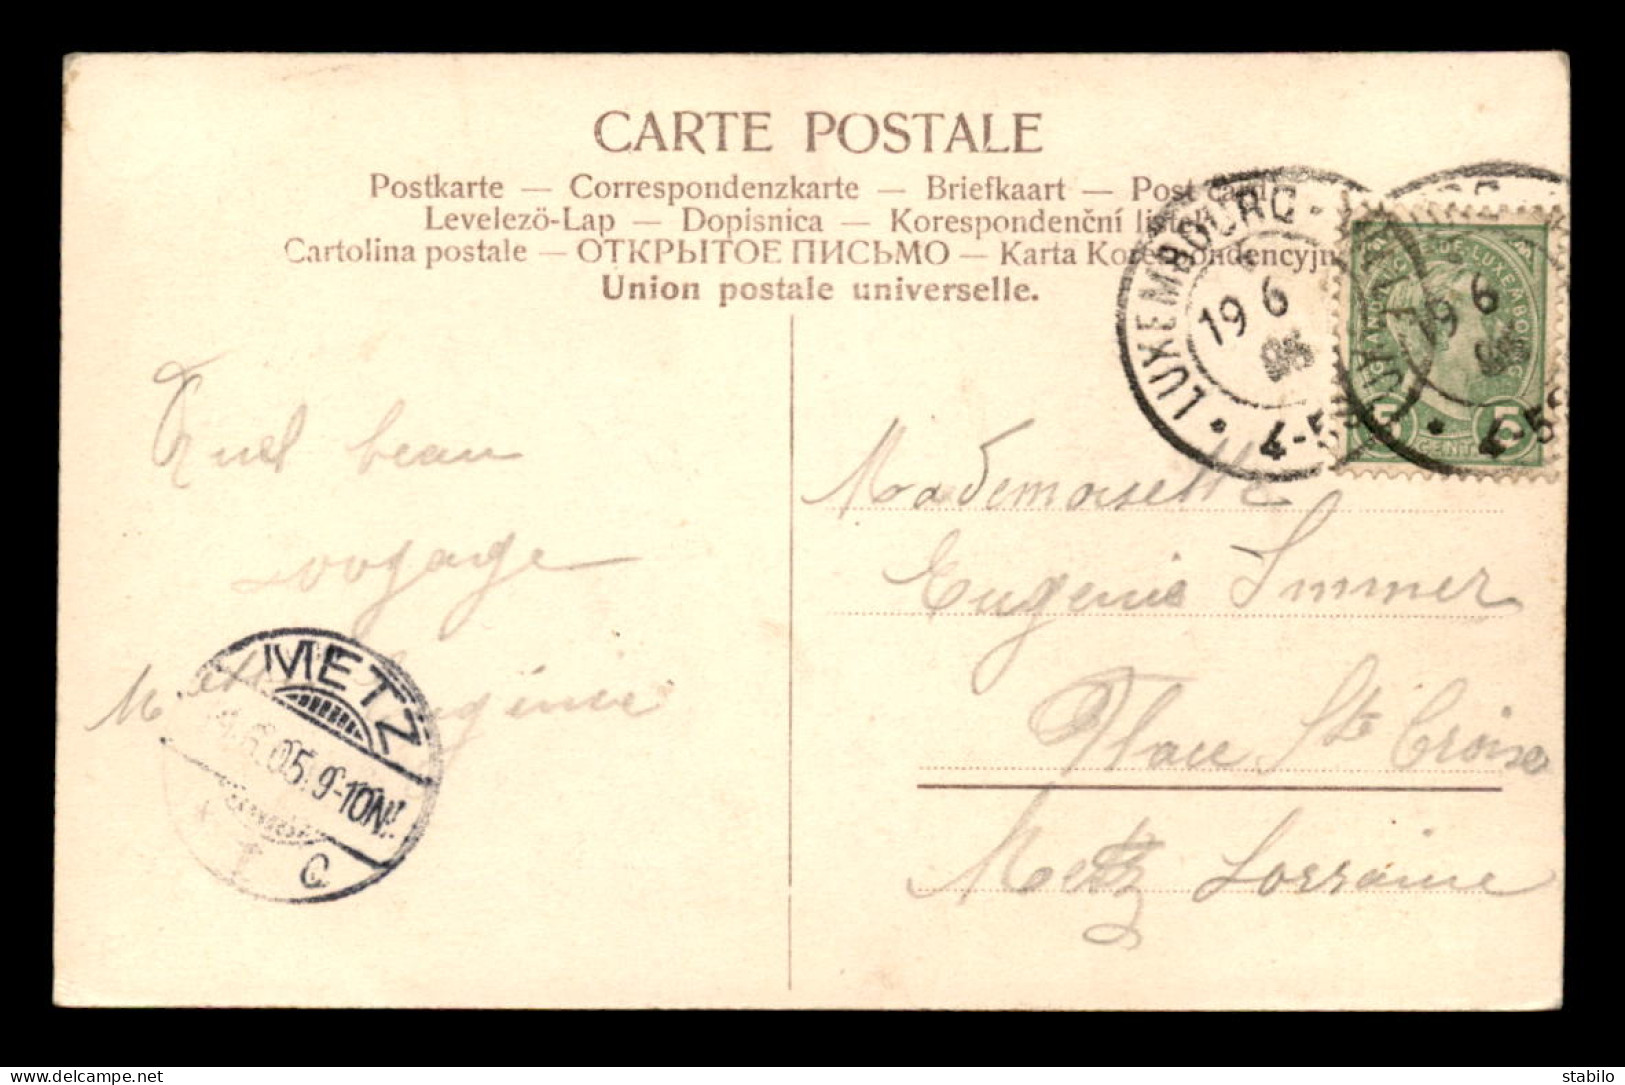 CARTE POSTALE
Postkarte — Correspondenzkarte — Briefkaart — Post card
Levelező-Lap — Dopisnica — Korespondenční listek
Cartolina postale — ОТКРЫТОЕ ПИСЬМО — Karta Korespondencyjna
Union postale universelle.
LUXEMBOURG-
19 6
4-5
LUXEMBOURG
19 6
4-5
5
5
CENT.
Quel beau
voogage
METZ
05.9-10N
Mademoiselle
Eugenie Immer
Place Ste Croix
Metz Lorraine
delcampe.net
stabilo